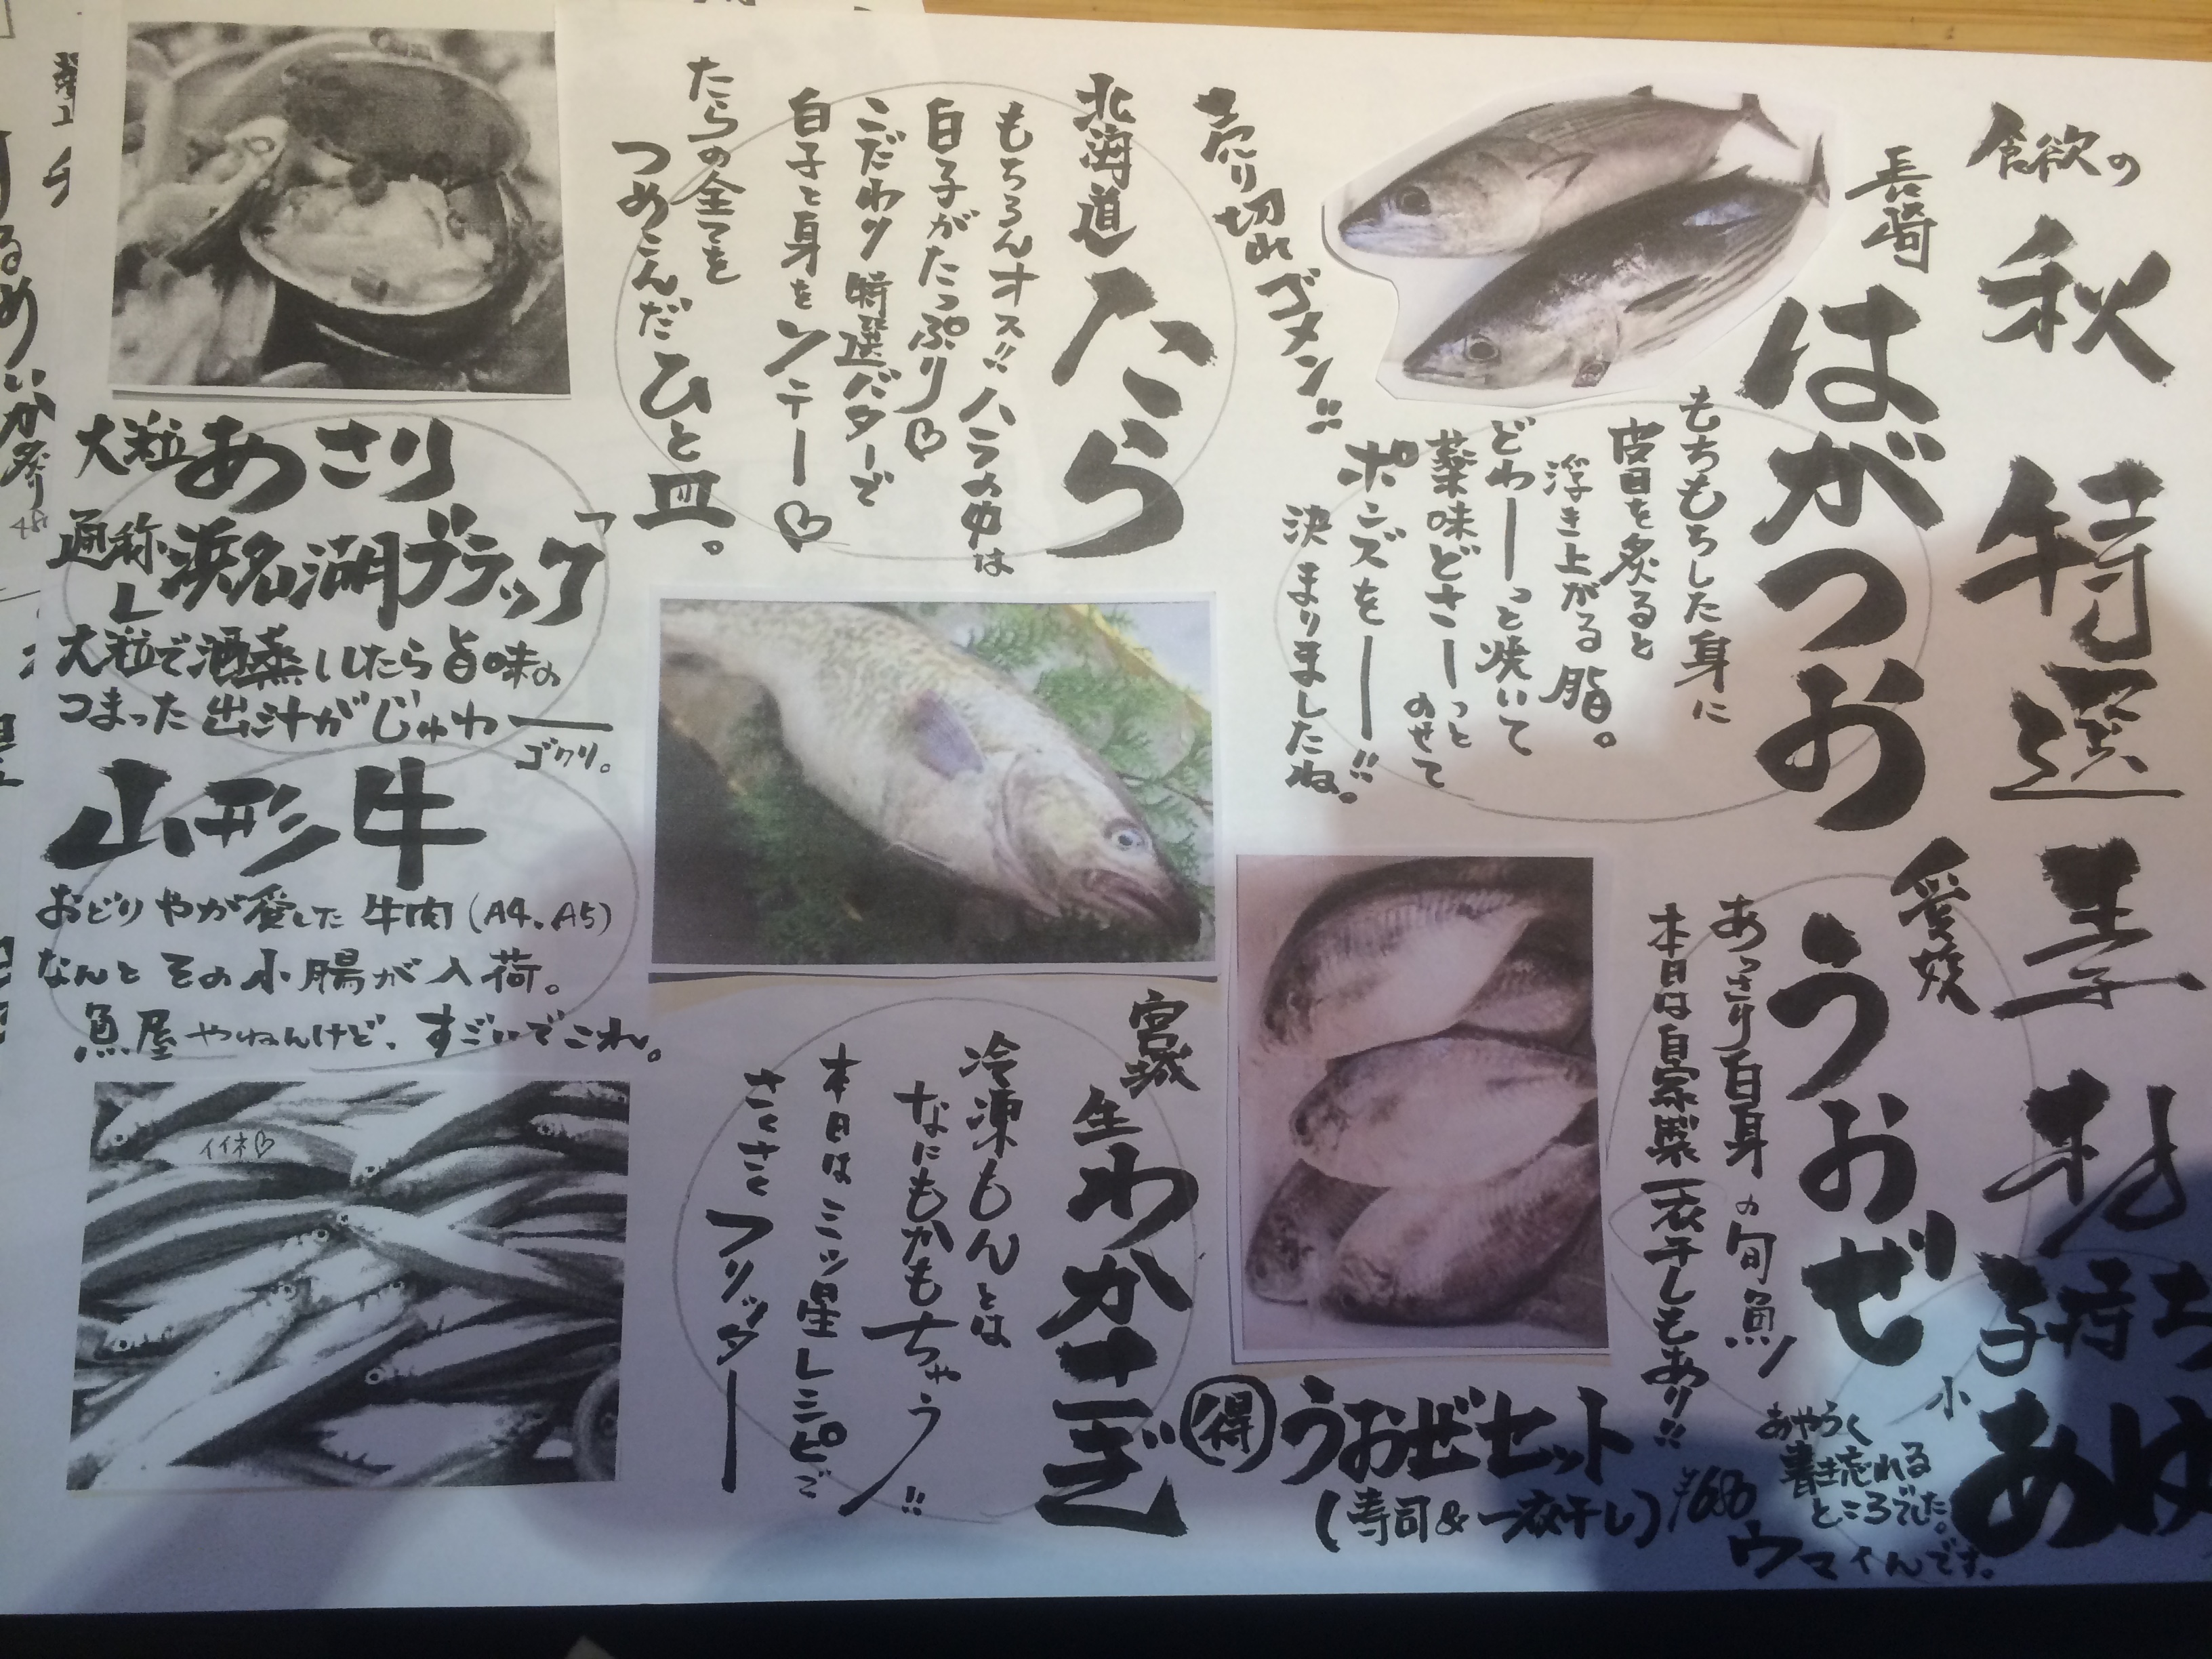 食欲の秋 特選素材
長崎
はがつお
もちもちした身に
皮目を炙ると
浮き上がる脂。
どわーっと焼いて
薬味どさーっと
のせて
ポンズをー!!
決まりましたね。
売り切れゴメン!!
愛媛
うおぜ
あっさり白身の旬魚♪
本日は自家製一夜干しもあり!!
得 うおぜセット
(寿司&一夜干し) ¥680
子持ち
小あゆ
あやうく
書き忘れる
ところでした。
ウマイんです。
北海道
たら
もちろんオス!!ハラの中は
白子がたっぷり♡
こだわり特選バターで
白子と身をソテー♡
たらの全てを
つめこんだひと皿。
宮城
生わかさぎ
冷凍もんとは
なにもかもちゃう!!
本日は三ッ星レシピで
さくさくフリッター
大粒あさり
通称「浜名湖ブラック」
大粒で酒蒸ししたら旨味の
つまった出汁がじゅわー
ゴクリ。
山形牛
おどりやが愛した牛肉(A4、A5)
なんとその小腸が入荷。
魚屋やねんけど、すごいでこれ。
イイネ♡
るめいか